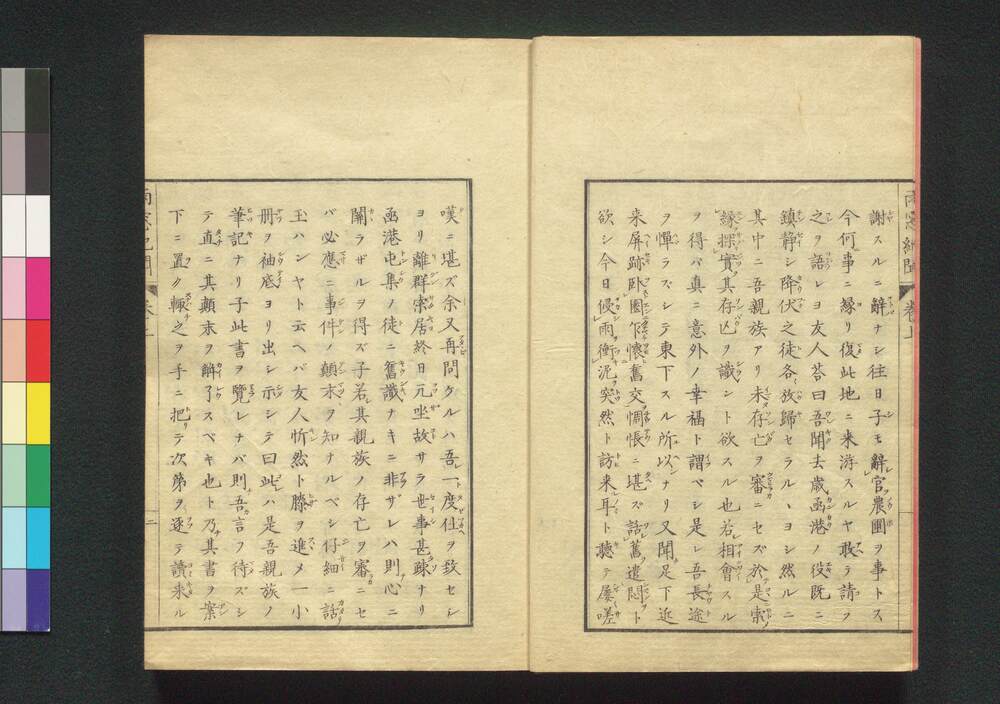 謝スルニ辭ナシ往日子モ辭官農圃ヲ事トス
今何事ニ縁リ復此地ニ来游スルヤ敢テ請フ
之ヲ語レヨ友人荅曰吾聞去歳函港ノ役既ニ
鎮静シ降伏之徒各〻放歸セラルヽヨシ然ルニ
其中ニ吾親族アリ未存亡ヲ審ニセズ於是索
縁探實其存凶ヲ識ント欲スル也若相會スル
ヲ得バ真ニ意外ノ幸福ト謂ベシ是レ吾長途
ヲ憚ラズシテ東下スル所以ナリ又聞足下近
来屏跡卧園乍懷舊交惆悵ニ堪ズ話舊遣悶ト
欲シ今日侵雨衝泥突然ト訪来耳ト聴テ屢嗟
嘆ニ堪ズ余又再問クルハ吾一度仕ヲ致セシ
ヨリ離群索居終日兀坐故サラ世事甚疎ナリ
函港屯集ノ徒ニ舊識ナキニ非ザレハ則心ニ
關ラザルヲ得ズ子若其親族ノ存亡ヲ審ニセ
バ必應ニ事件ノ顛末ヲ知ナルベシ仔細ニ話
玉ハンヤト云ヘバ友人忻然ト膝ヲ進メ一小
册ヲ袖底ヨリ出シ示シテ曰此ハ是吾親族ノ
筆記ナリ子此書ヲ覽レナバ則吾言フ待ズシ
テ直ニ其顛末ヲ解了スベキ也ト乃其書ヲ案
下ニ置ク輙之ヲ手ニ把リテ次第ヲ逐テ讀来ル
二